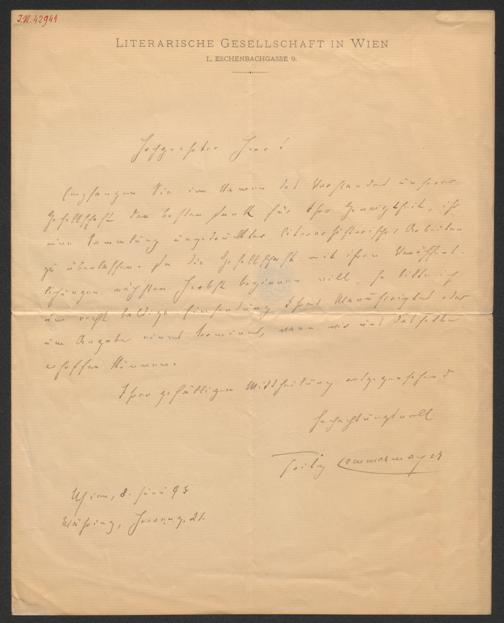 I.N. 42941
LITERARISCHE GESELLSCHAFT IN WIEN
I., ESCHENBACHGASSE 9.
Hochgeehrter Herr!
Empfangen Sie im Namen des Vorstandes unserer
Gesellschaft den besten Dank für Ihre Geneigtheit, ihr
eine Sammlung ungedruckter literarhistorischer Arbeiten
zu überlassen. Da die Gesellschaft mit ihren Veröffent-
lichungen nächsten Herbst beginnen will, so bitte ich
um recht baldige Einsendung Ihres Manuscriptes oder
um Angabe eines Termines, wann wir uns dasselbe
erhoffen können.
Ihrer gefälligen Mittheilung entgegensehend
hochachtungsvoll
Fritz Lemmermayer
Wien, 8. Juni 93
Währing,